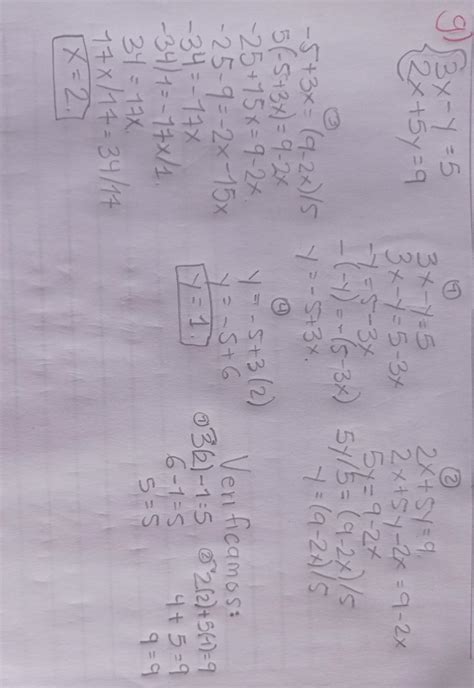 g) { 3x-y=5
2x+5y=9
①
3x-y=5
3x-y=5-3x
-y=5-3x
-(-y)=-(5-3x)
y=-5+3x.
②
2x+5y=9.
2x+5y-2x=9-2x
5y=9-2x
5y/5=(9-2x)/5
y=(9-2x)/5
③
-5+3x=(9-2x)/5
5(-5+3x)=9-2x
-25+15x=9-2x.
-25-9=-2x-15x
-34=-17x
-34/1=-17x/1.
34=17x
17x/17=34/17
x=2.
④
y=-5+3(2)
y=-5+6
y=1.
Verificamos:
① 3(2)-1=5
6-1=5
5=5
② 2(2)+5(1)=9
4+5=9
9=9